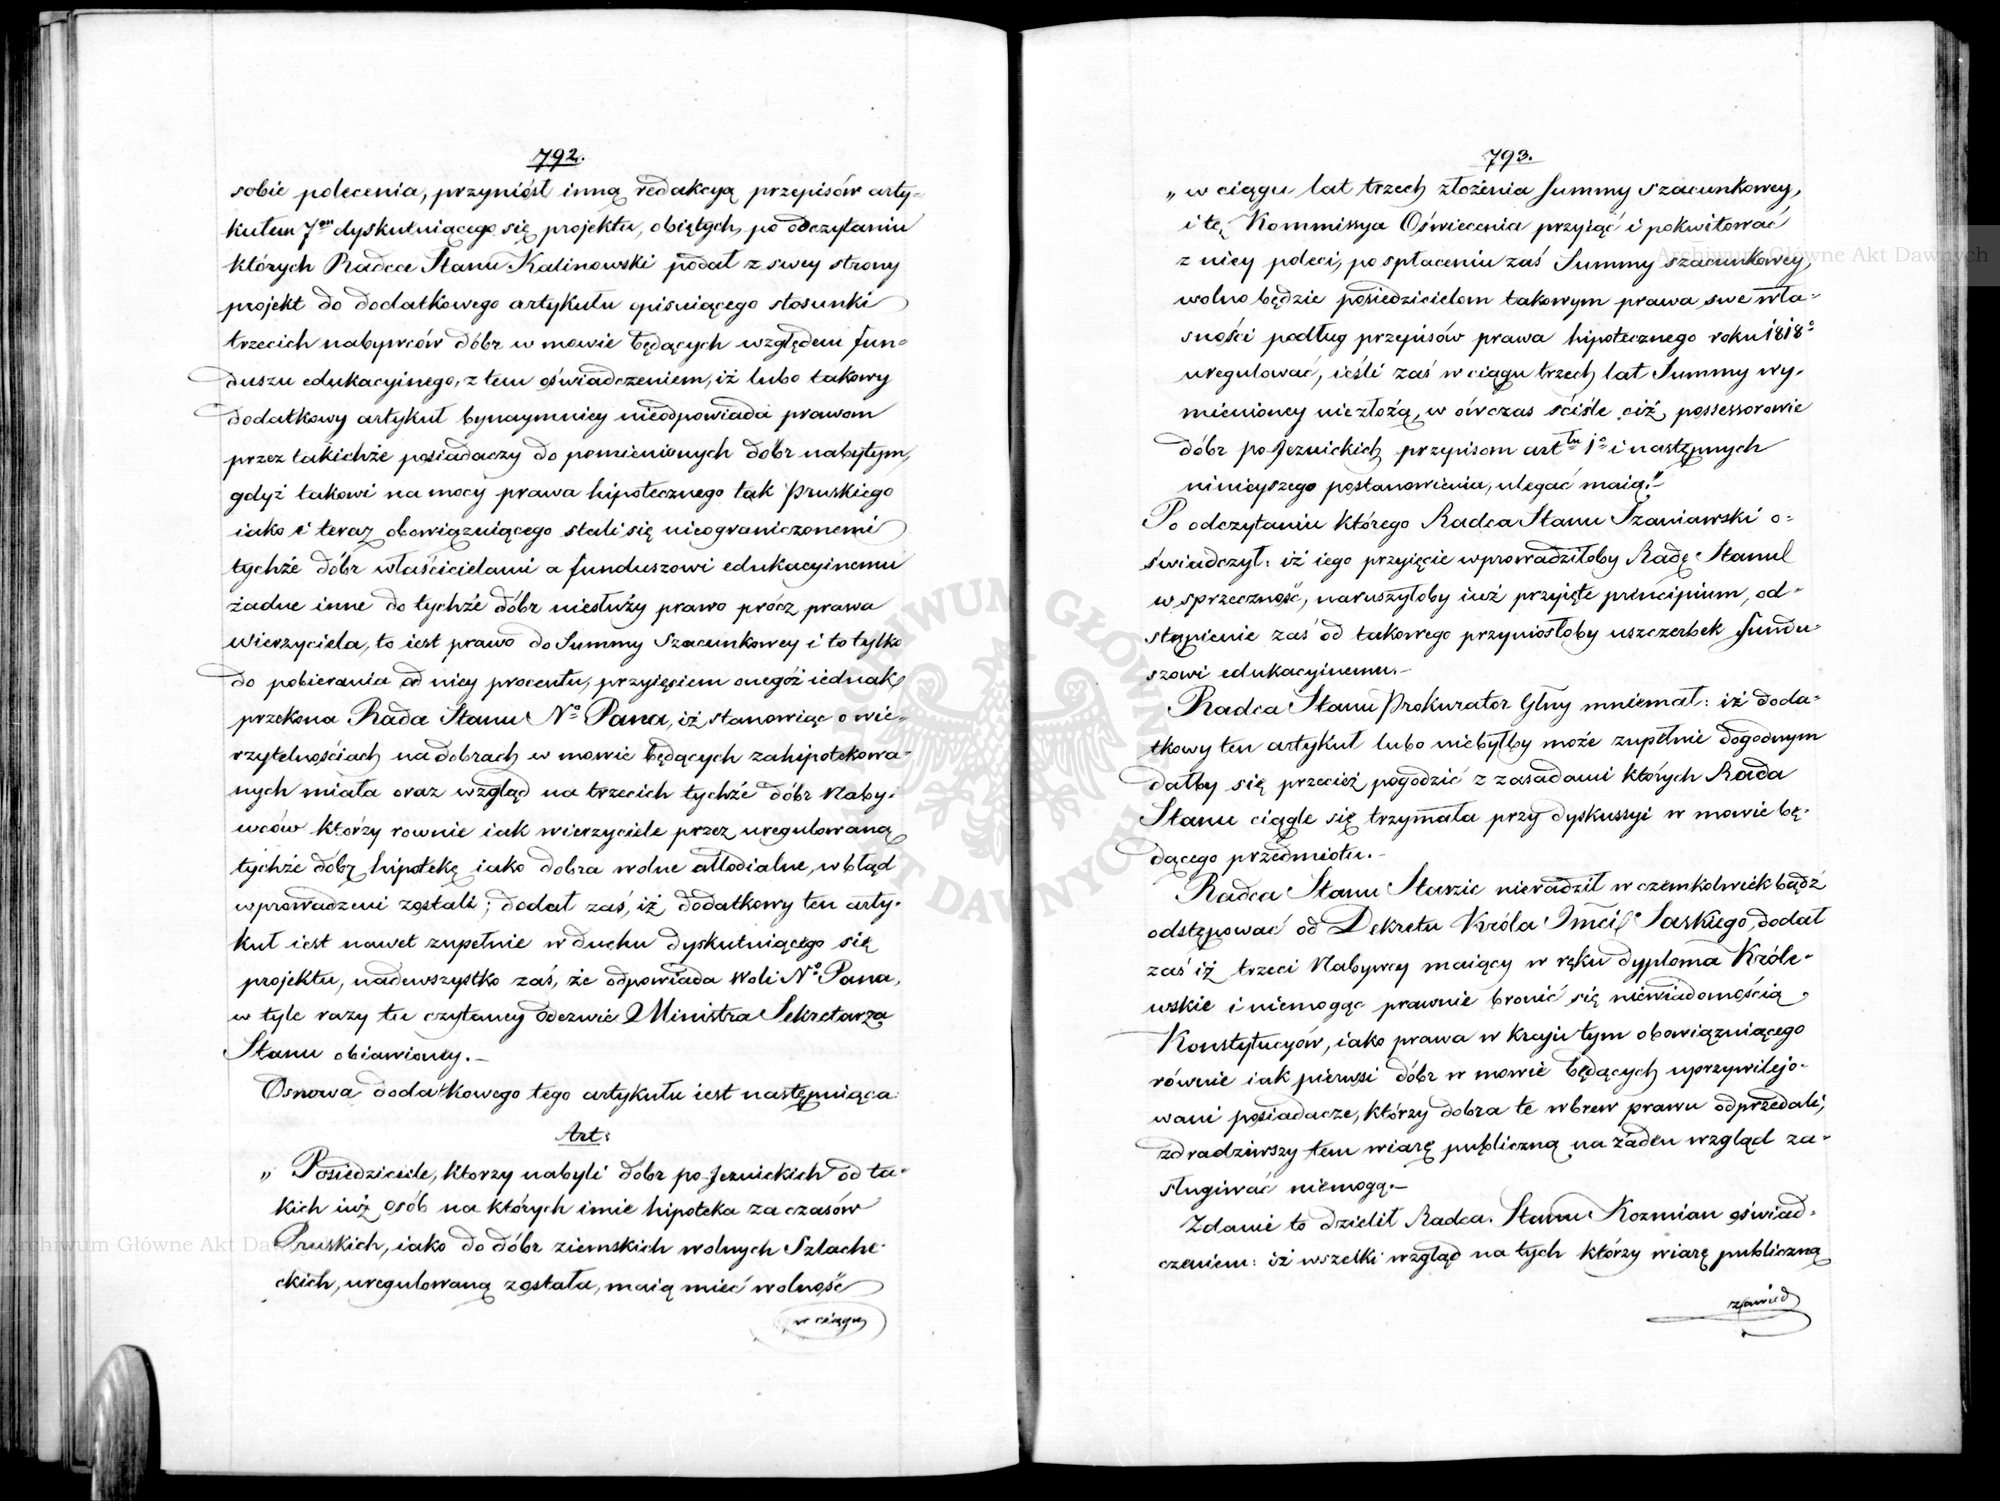 792.
sobie polecenia, przyniósł inną redakcyą przepisów arty-
kułem 7em dyskutuiącego się projektu, obiętych, po odczytaniu
których Radca Stanu Kalinowski podał z swey strony
projekt do dodatkowego artykułu opisuiącego stosunki
trzecich nabywców dóbr w mowie będących względem fun-
duszu edukacyinego, z tem oświadczeniem, iż lubo takowy
dodatkowy artykuł bynaymniey nieodpowiada prawom
przez takichże posiadaczy do pomienionych dóbr nabytym,
gdyż takowi na mocy prawa hipotecznego tak Pruskiego
iako i teraz obowiązuiącego stali się nieograniczonemi
tychże dóbr właścicielami a funduszowi edukacyinemu
żadne inne do tychże dóbr niesłuży prawo prócz prawa
Wierzyciela, to iest prawo do Summy Szacunkowey i to tylko
do pobierania od niey procentu, przyięciem onegóż iednak
przekona Rada Stanu No Pana, iż stanowiąc o wie-
rzytelnościach na dobrach w mowie będących zahipotekowa-
nych miała oraz wzgląd na trzecich tychże dóbr Naby-
wców którzy rownie iak wierzyciele przez uregulowaną
tychże dóbr hipotekę iako dobra wolne allodialne, w błąd
wprowadzeni zostali; dodał zaś, iż dodatkowy ten arty-
kuł iest nawet zupełnie w duchu dyskutuiącego się
projektu, nadewszystko zaś, że odpowiada Woli No Pana,
w tyle razy tu czytaney Odezwie Ministra Sekretarza
Stanu obiawioney.–
Osnowa dodatkowego tego artykułu iest następuiąca:
Art:
„ Posiedziciele, ktorzy nabyli dóbr po-Jezuickich od ta-
kich iuż osób na których imie hipoteka za czasów
Pruskich, iako do dóbr ziemskich wolnych Szlache-
ckich, uregulowaną została, maią mieć wolność
w ciągu
793.
„ w ciągu lat trzech złożenia Summy szacunkowey,
i tę Kommissya Oświecenia przyiąć i pokwitować
z niey poleci, po spłaceniu zaś Summy szacunkowey,
wolno będzie posiedzicielom takowym prawa swe wła-
sności podług przepisów prawa hipotecznego roku 1818o
uregulować, ieśli zaś w ciągu trzech lat Summy wy-
mienioney niezłożą, w ówczas ściśle ciż possessorowie
dóbr po-Jezuickich przepisom arttu 1o i następnych
ninieyszego postanowienia, ulegać maią.“–
Po odczytaniu którego Radca Stanu Szaniawski o-
świadczył: iż iego przyięcie wprowadziłoby Radę Stanu
w sprzeczność, naruszyłoby iuż przyięte principium, od-
stąpienie zaś od takowego przyniosłoby uszczerbek fundu-
szowi edukacyinemu.–
Radca Stanu Prokurator Glny mniemał: iż doda-
tkowy ten artykuł lubo niebyłby może zupełnie dogodnym
dałby się przecież pogodzić z zasadami których Rada
Stanu ciągle się trzymała przy dyskussyi w mowie bę-
dącego przedmiotu.–
Radca Stanu Staszic nieradził w czemkolwiekbądź
odstępować od Dekretu Króla Imci Saskiego, dodał
zaś iż trzeci Nabywcy maiący w ręku dyploma Króle-
wskie i niemogąc prawnie bronić się niewiadomością
Konstytucyów, iako prawa w kraju tym obowiązuiącego
równie iak pierwsi dóbr w mowie będących uprzywilejo-
wani posiadacze, którzy dobra te wbrew prawu odprzedali,
zdradziwszy tem wiarę publiczną na żaden wzgląd za-
sługiwać niemogą.–
Zdanie to dzielił Radca Stanu Kozmian oświad-
czeniem: iż wszelki wzgląd na tych którzy wiarę publiczną
zawied
ARCHIWUM GŁÓWNE AKT DAWNYCH
Archiwum Główne Akt Dawnych
Archiwum Główne Akt Dawnych